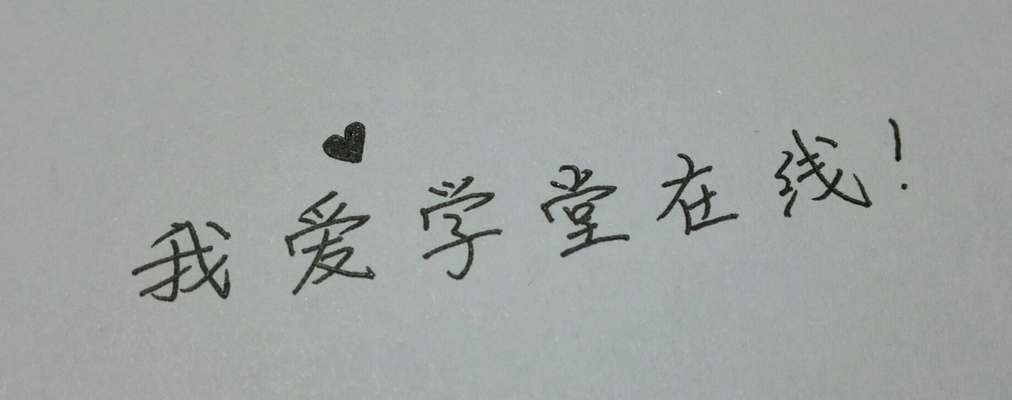 我爱学堂在线!